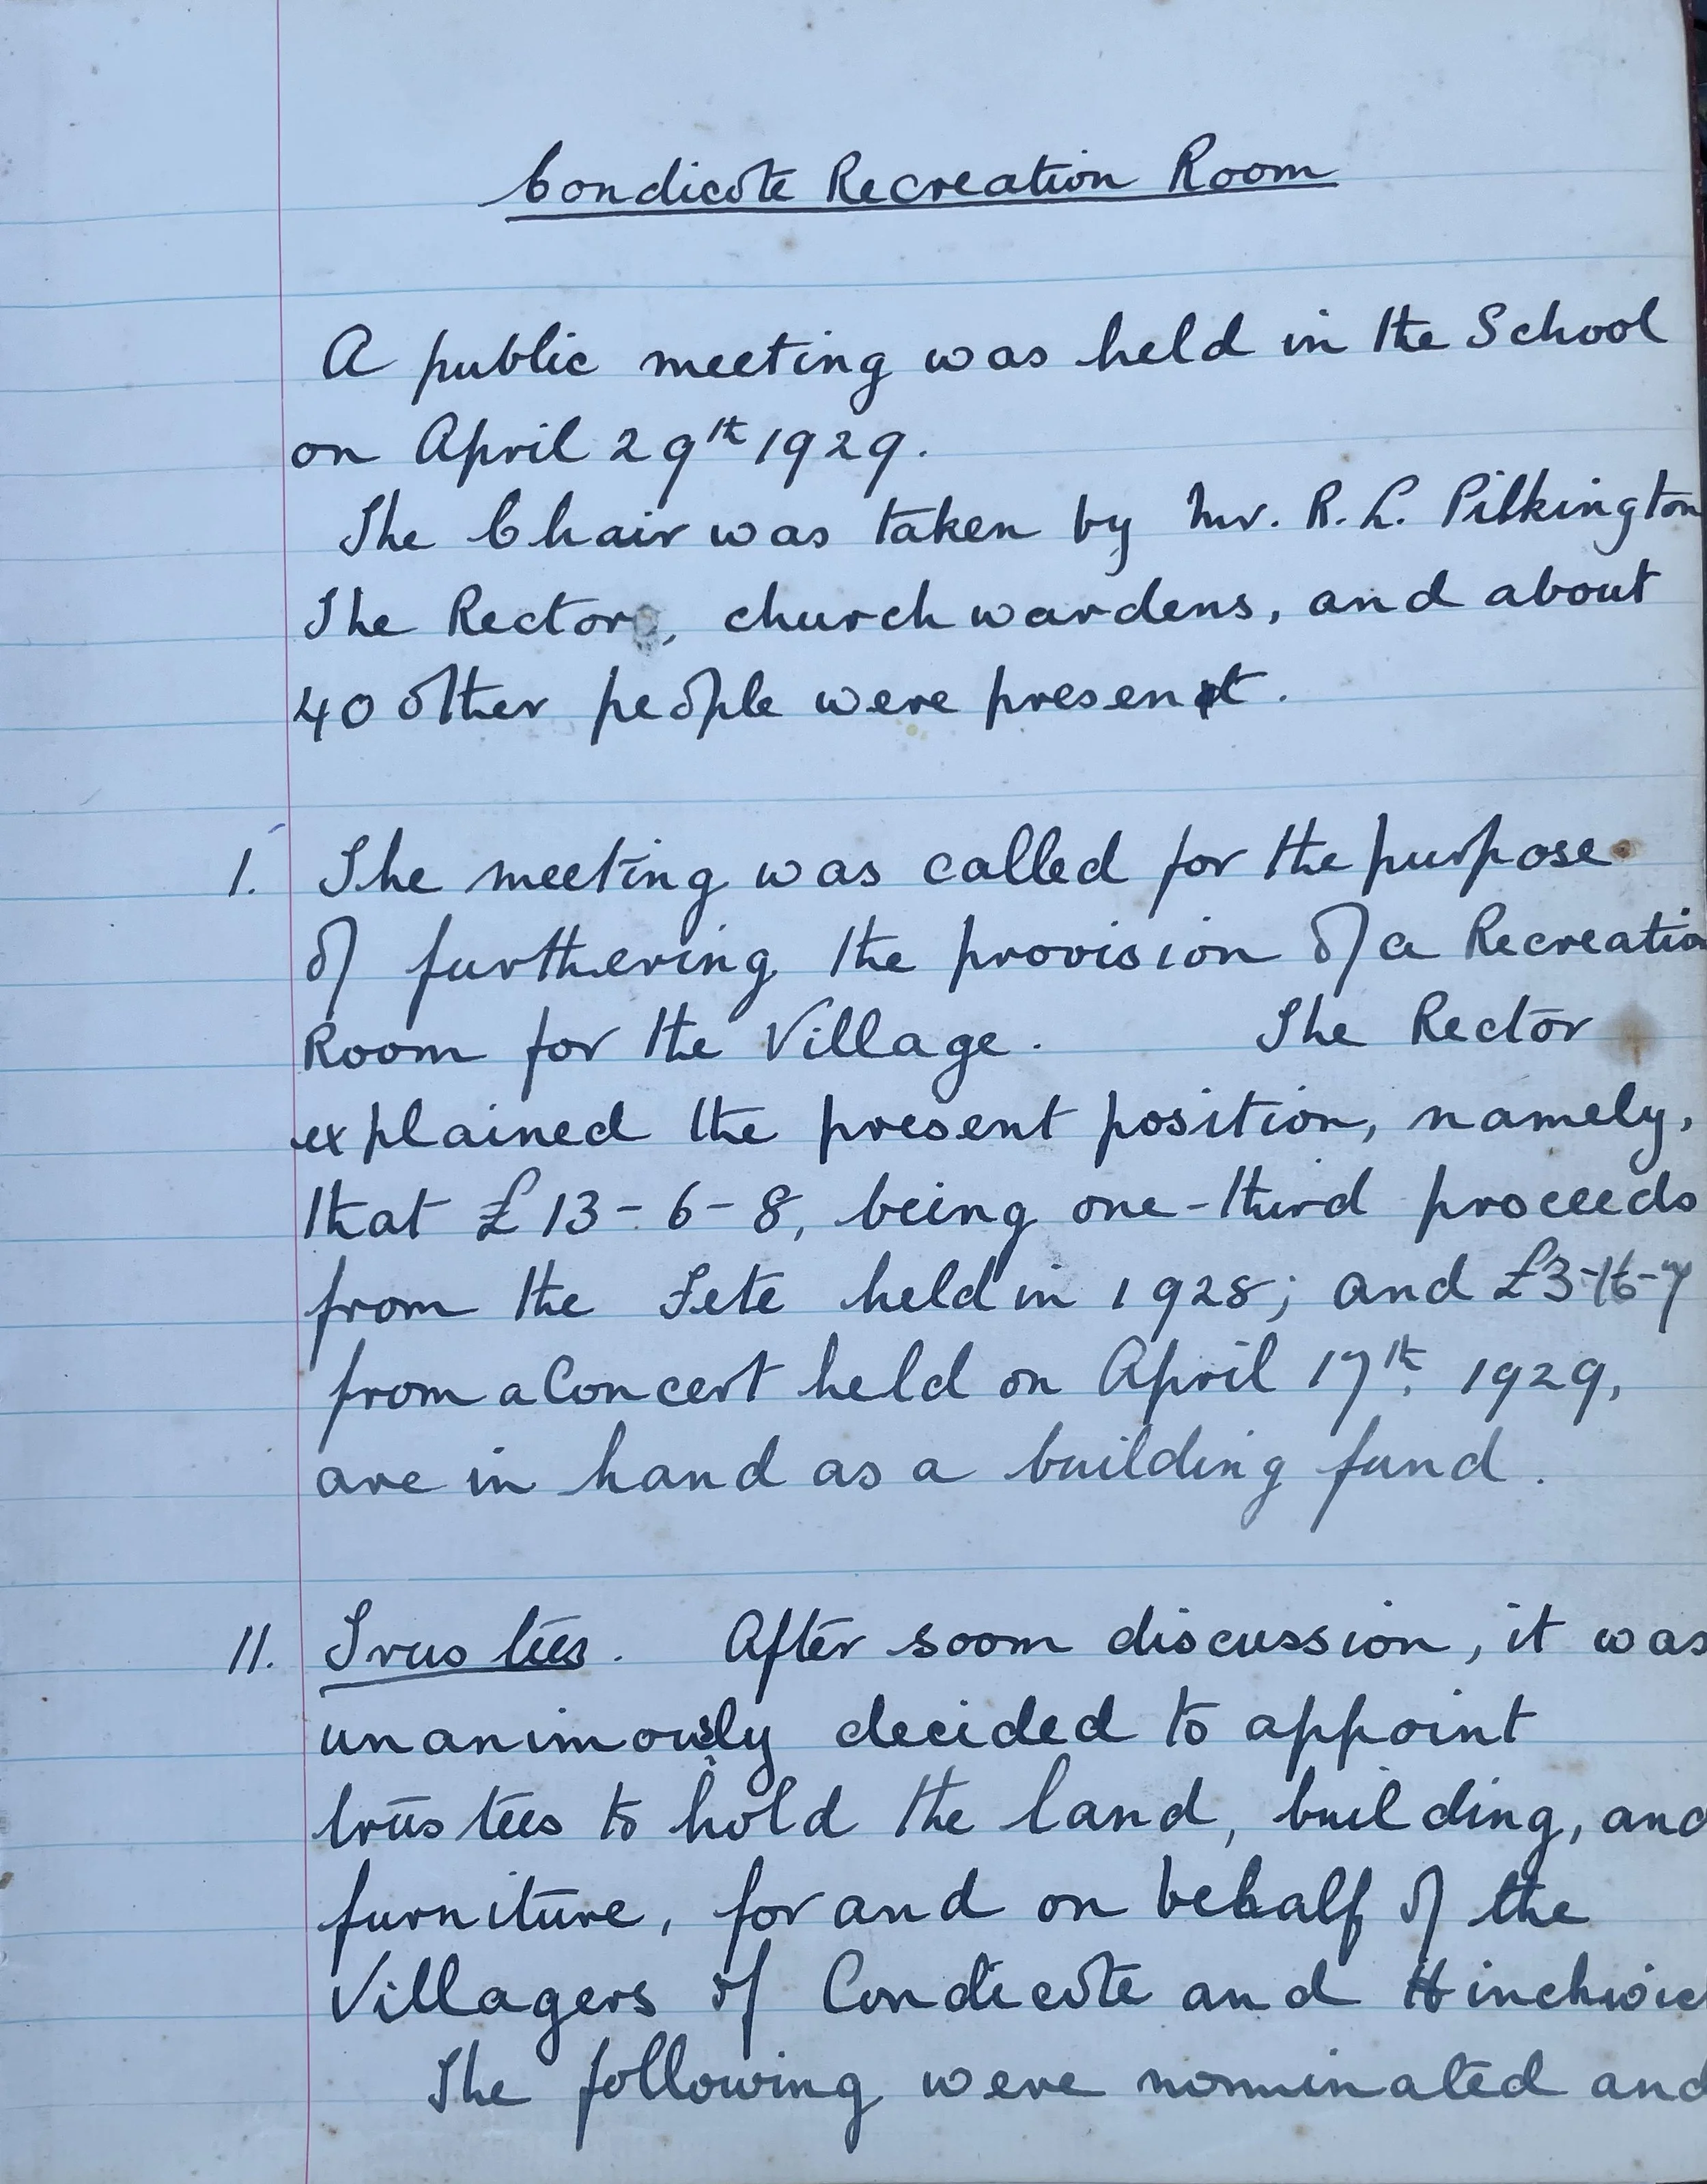 Condicote Recreation Room
A public meeting was held in the School
on April 29th 1929.
The Chair was taken by Mr. R. L. Pilkington
The Rector, churchwardens, and about
40 other people were present.
I. The meeting was called for the purpose
of furthering the provision of a Recreatio
Room for the Village. The Rector
explained the present position, namely,
that £13-6-8, being one-third proceeds
from the Fete held in 1928; and £3-16-7
from a Concert held on April 17th, 1929,
are in hand as a building fund.
II. Trustees. After soom discussion, it was
unanimously decided to appoint
trustees to hold the land, building, and
furniture, for and on behalf of the
Villagers of Condicote and Hinchwic
The following were nominated and